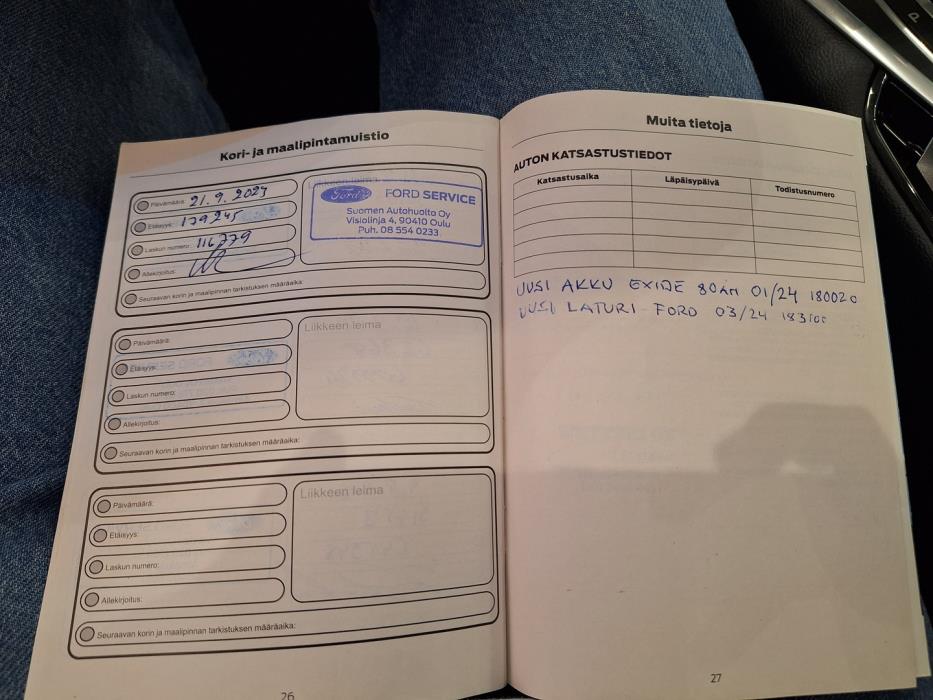 Kori- ja maalipintamuistio
Päivämäärä: 21.9.2024
Etäisyys: 179245
Laskun numero: 116779
Allekirjoitus:
Seuraavan korin ja maalipinnan tarkistuksen määräaika:
Liikkeen leima
Ford FORD SERVICE
Suomen Autohuolto Oy
Visiolinja 4, 90410 Oulu
Puh. 08 554 0233
Päivämäärä:
Etäisyys:
Laskun numero:
Allekirjoitus:
Seuraavan korin ja maalipinnan tarkistuksen määräaika:
Liikkeen leima
Päivämäärä:
Etäisyys:
Laskun numero:
Allekirjoitus:
Seuraavan korin ja maalipinnan tarkistuksen määräaika:
Liikkeen leima
26
Muita tietoja
AUTON KATSASTUSTIEDOT
Katsastusaika Läpäisypäivä Todistusnumero
UUSI AKKU EXIDE 80AH 01/24 180020
UUSI LATURI - FORD 03/24
27
P